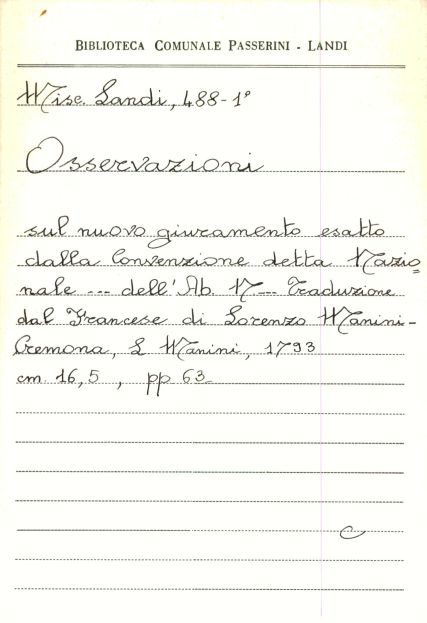 BIBLIOTECA COMUNALE PASSERINI - LANDI
Misc. Landi, 488-1°
Osservazioni
sul nuovo giuramento esatto
dalla Convenzione detta Nazio=
nale --- dell'Ab. N--- Traduzione
dal Francese di Lorenzo Manini-
Cremona, L. Manini, 1793
cm. 16,5 , pp 63-
C